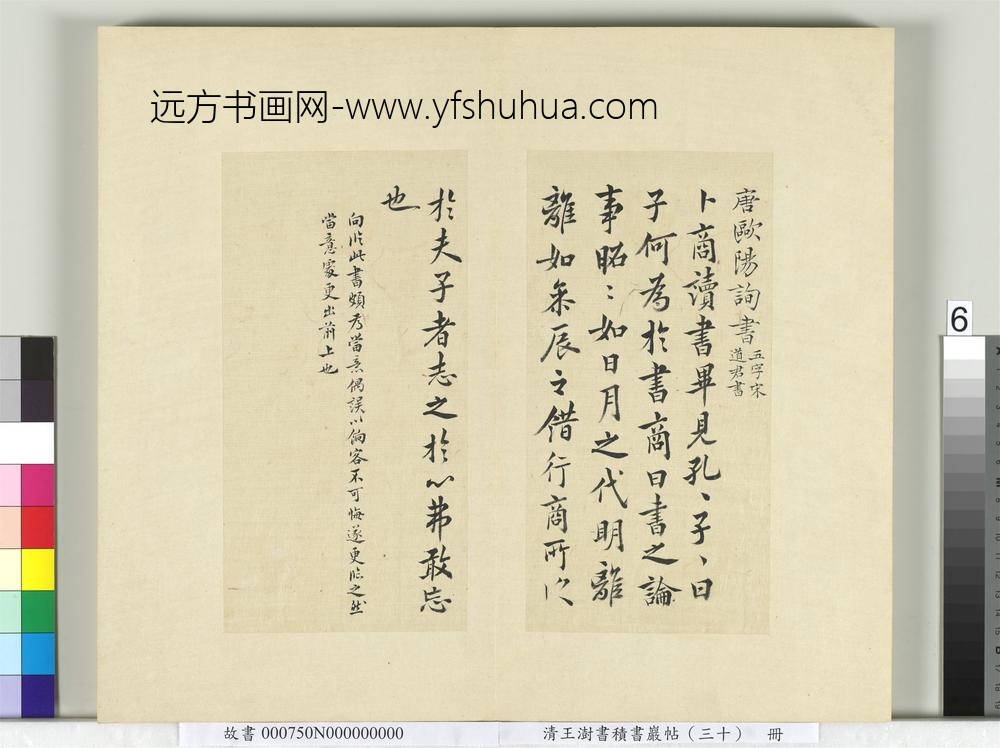 远方书画网-www.yfshuhua.com
唐歐陽詢書 五字宋
道君書
卜商讀書畢見孔、子、曰
子何為於書商曰書之論
事昭:如日月之代明離
離如參辰之錯行商所以
於夫子者志之於心弗敢忘
也
向臨此書頗為當意偶誤以餉客不可悔遂更臨之然
當意處更出前上也
6
故書 000750N000000000
清王澍書積書巖帖(三十) 冊